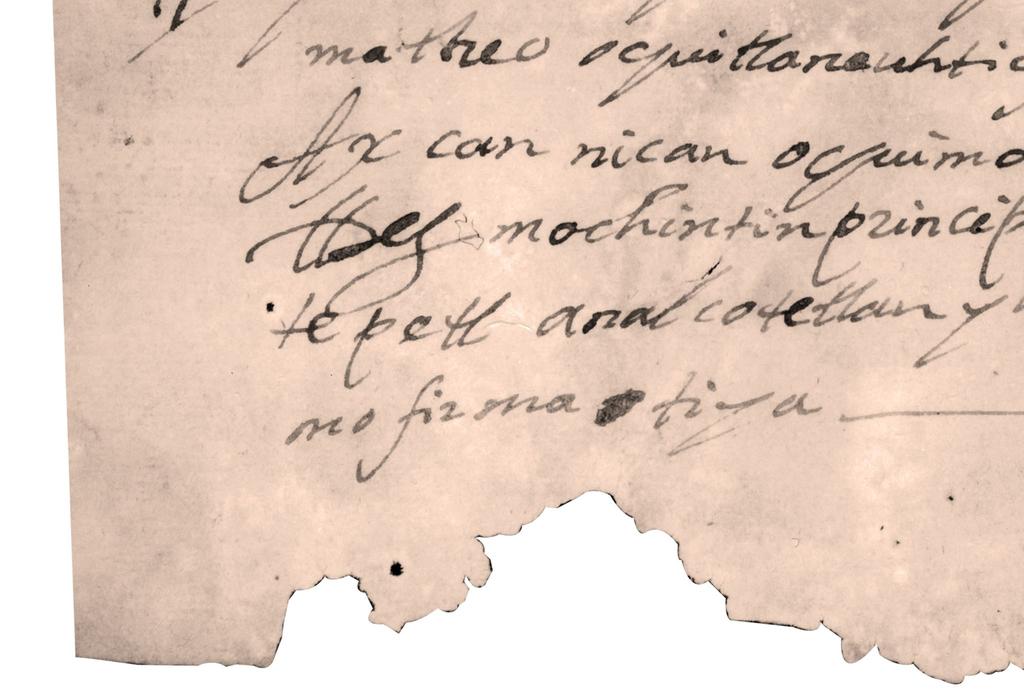 mattheo oquitlaneuhti
Ax can nican oquimo
mochintin princip
tepetl analcotetlan y
mo firma tiya